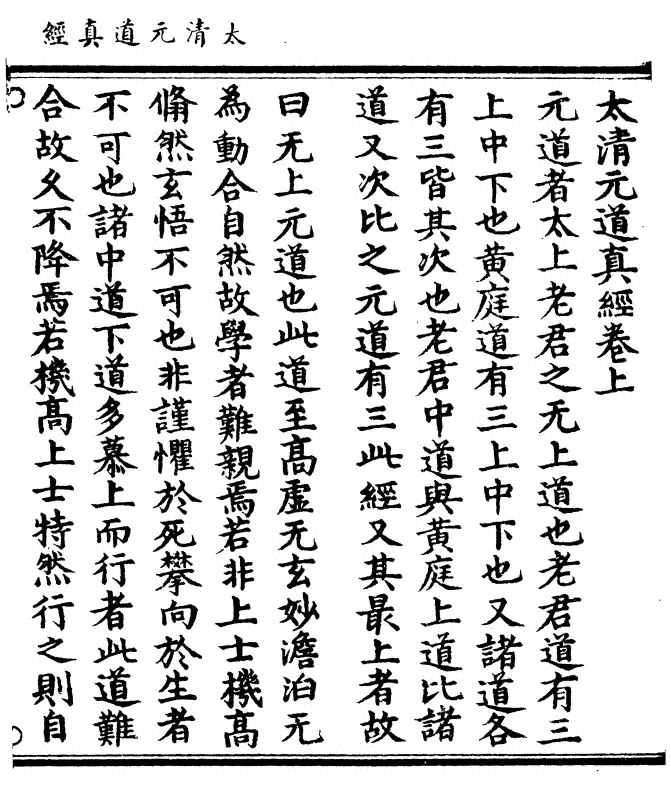 太清元道真經
太清元道真經卷上
元道者太上老君之无上道也老君道有三
上中下也黃庭道有三上中下也又諸道各
有三皆其次也老君中道與黃庭上道比諸
道又次比之元道有三此經又其最上者故
曰无上元道也此道至高虛无玄妙澹泊无
為動合自然故學者難親焉若非上士機高
翛然玄悟不可也非謹懼於死攀向於生者
不可也諸中道下道多慕上而行者此道難
合故久不降焉若機高上士特然行之則自